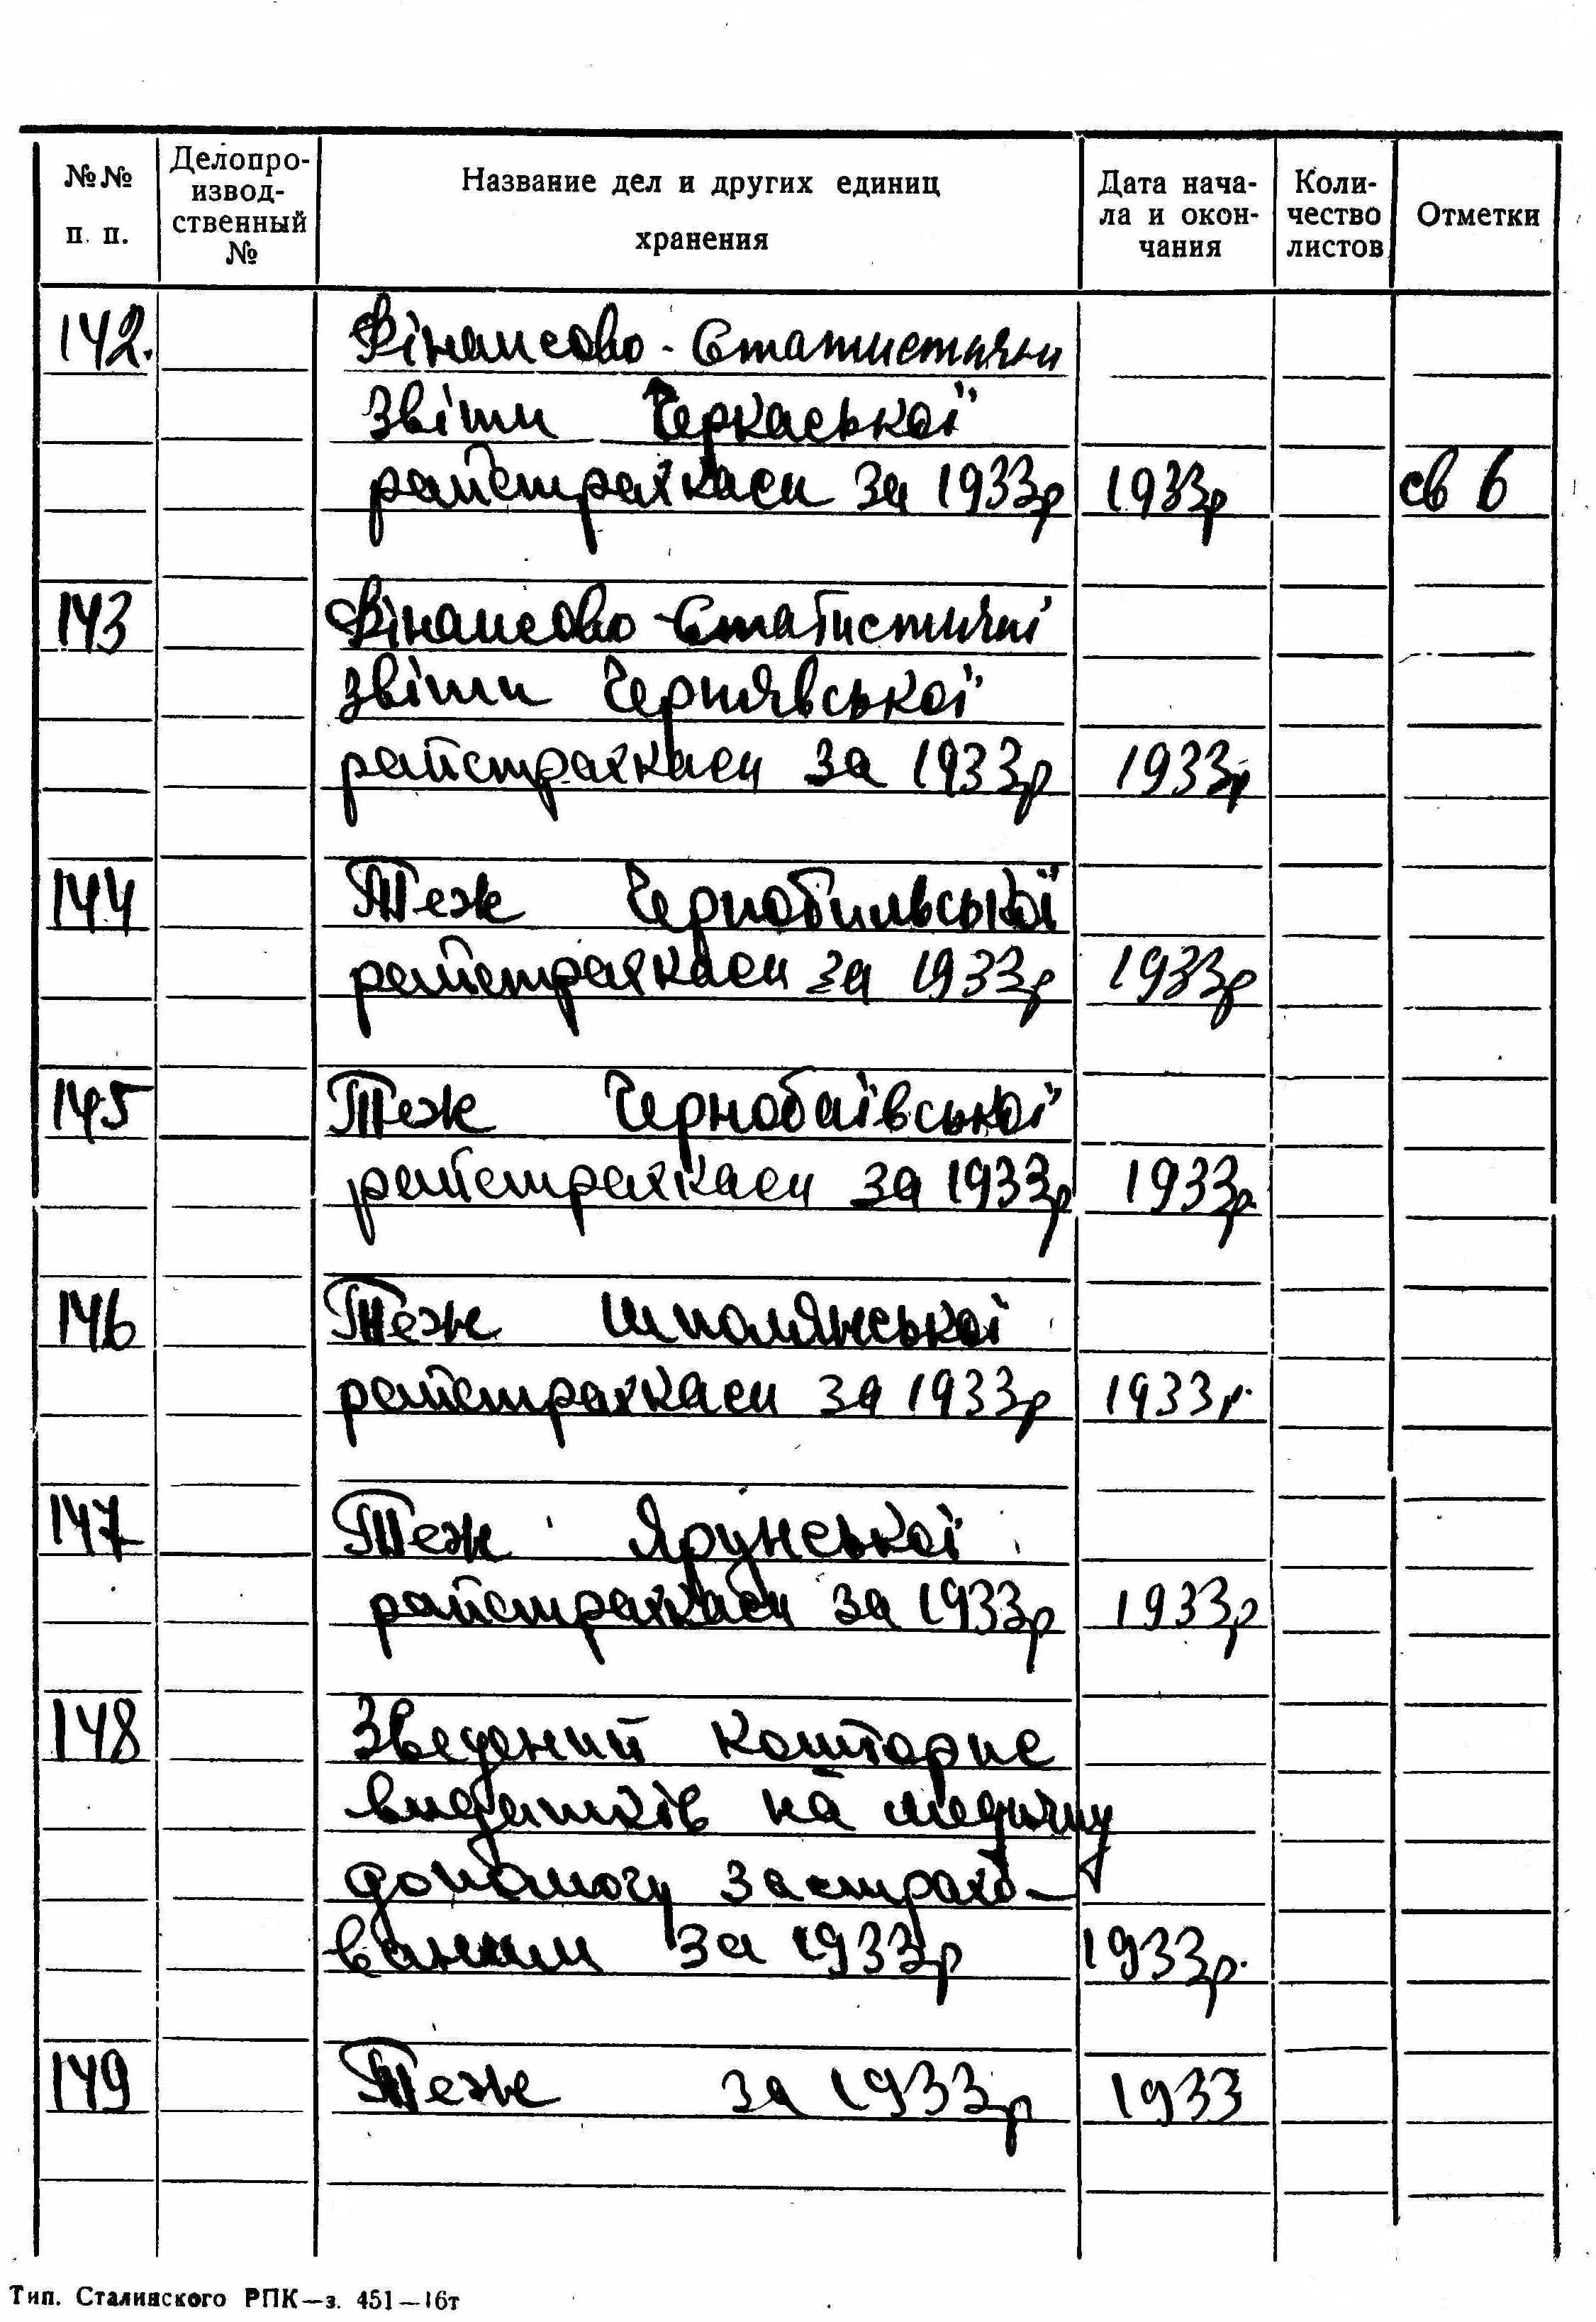 №№ п. п.
Делопро-
извод-
ственный
№
Название дел и других единиц
хранения
Дата нача-
ла и окон-
чания
Коли-
чество
листов
Отметки
142.
Фінансово - Статистични
Звіти Черкаської
райстрахкаси за 1933р 1933р св 6
143 Фінансово - Статистичні
звіти Чернявської
райстрахкаси за 1933р 1933р
144 Теж Чернобильської
райстрахкаси за 1933р 1933р
145 Теж Чернобаївської
райстрахкаси за 1933р 1933р.
146 Теж Шполянської
райстрахкаси за 1933р 1933р.
147 Теж Ярунської
райстрахкаси за 1933р 1933р
148 Зведений кошторис
видатків на медичну
допомогу застрахо-
ваним за 1933р 1933р.
149 Теж за 1933р 1933
Тип. Сталинского РПК—з. 451—16т